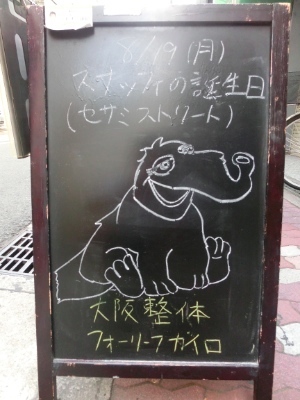 8/19(月)
スナッフィの誕生日
(セサミストリート)
大阪整体
フォーリーフガイロ